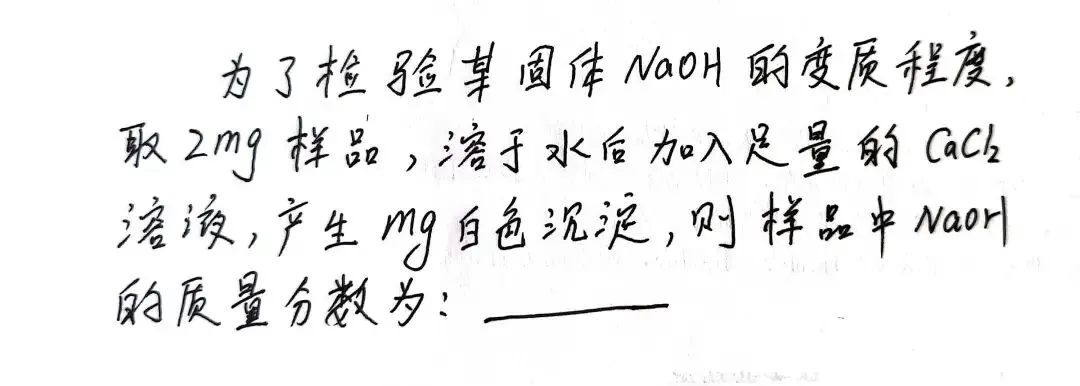 为了检验某固体NaOH的变质程度,
取2mg样品,溶于水后加入足量的CaCl₂
溶液,产生mg白色沉淀,则样品中NaOH
的质量分数为: